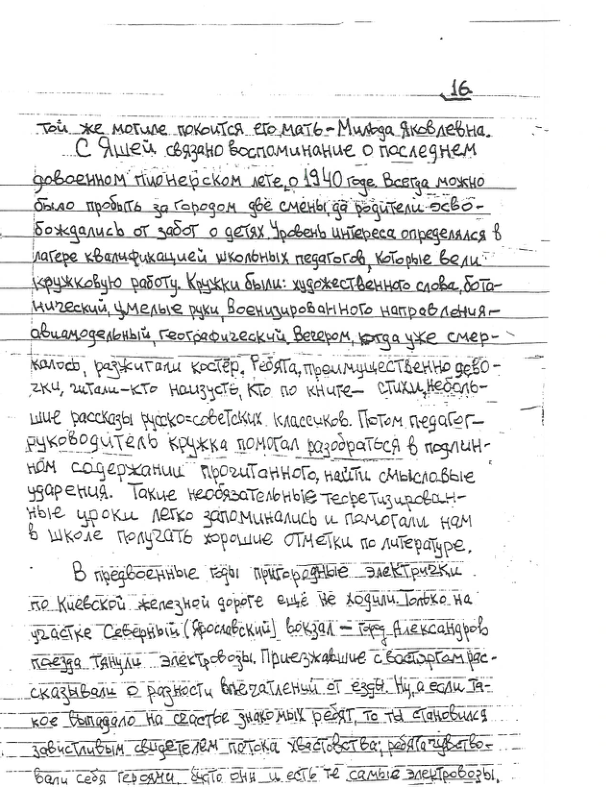 16
той же могиле покоится его мать-Мильда Яковлевна.
С Яшей связано воспоминание о последнем
довоенном пионерском лете, о 1940 годе. Всегда можно
было пробыть за городом две смены, да родители осво-
бождались от забот о детях. Уровень интереса определялся в
лагере квалификацией школьных педагогов, которые вели
кружковую работу. Кружки были: художественного слова, бота-
нический, умелые руки, военизированного направления-
авиамодельный, географический. Вечером, когда уже смер-
калось, разжигали костёр. Ребята, преимущественно дево-
чки, читали-кто наизусть, кто по книге- стихи, неболь-
шие рассказы русско=советских классиков. Потом педагог-
руководитель кружка помогал разобраться в подлин-
ном содержании прочитанного, найти смысловые
ударения. Такие необязательные теоретизирован-
ные уроки легко запоминались и помогали нам
в школе получать хорошие отметки по литературе.
В предвоенные годы пригородные электрички
по Киевской железной дороге ещё не ходили. Только на
участке Северный (Ярославский) вокзал - город Александров
поезда тянули электровозы. Приезжавшие с восторгом рас-
сказывали о разности впечатлений от езды. Ну, а если та-
кое выпадало на счастье знакомых ребят, то ты становился
завистливым свидетелем потока хвастовства; ребята чувство-
вали себя героями, они и есть те самые электровозы,